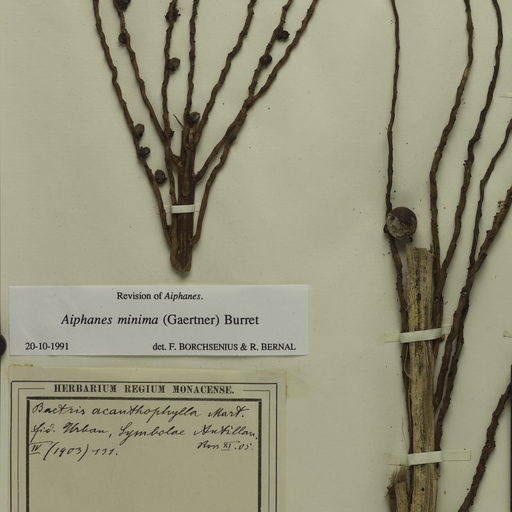 Revision of Aiphanes.
Aiphanes minima (Gaertner) Burret
20-10-1991 det. F. BORCHSENIUS & R. BERNAL
HERBARIUM REGIUM MONACENSE.
Bactris acanthophylla Mart.
fid. Urban, Symbolae Antillan.
IV (1903) 131. XI.05.